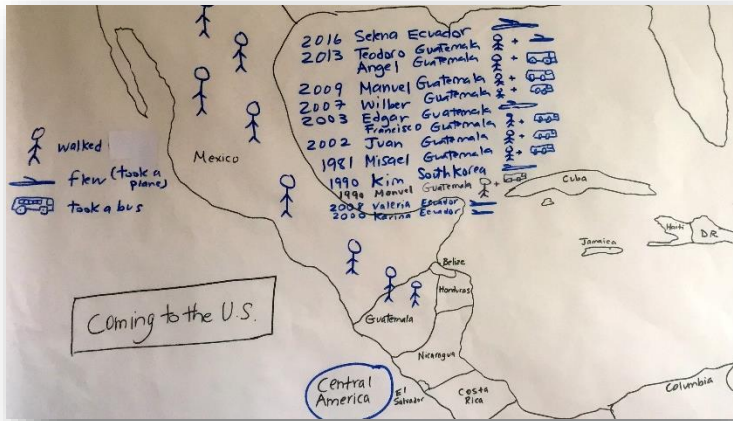 2016 Selena Ecuador
2013 Teodoro Guatemala +
Angel Guatemala +
2009 Manuel Guatemala +
2007 Wilber Guatemala +
2003 Edgar Guatemala
Francisco Guatemala +
2002 Juan Guatemala +
1981 Misael Guatemala +
1990 Kim South Korea
1990 Manuel Guatemala +
2008 Valeria Ecuador
2000 Karina Ecuador
walked
flew (took a
plane)
took a bus
Mexico
Cuba
Haiti
D.R.
Jamaica
Belize
Honduras
Guatemala
Coming to the U.S.
Nicaragua
Central
America
El
Salvador
Costa
Rica
Columbia